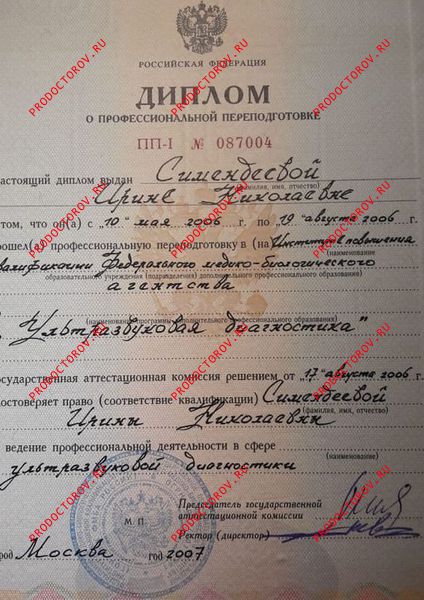 РОССИЙСКАЯ ФЕДЕРАЦИЯ
ДИПЛОМ
О ПРОФЕССИОНАЛЬНОЙ ПЕРЕПОДГОТОВКЕ
ПП-I № 087004
настоящий диплом выдан Симендеевой
(фамилия, имя, отчество)
Ирине Николаевне
том, что он(а) с "10" мая 2006 г. по "19" августа 2006 г.
рошел(а) профессиональную переподготовку в (на) Институте повышения
(наименование
валификации Федерального медико-биологического
образовательного учреждения (подразделения) дополнительного профессионального образования)
агентства
(наименование программы дополнительного профессионального образования)
"Ультразвуковая диагностика"
осударственная аттестационная комиссия решением от "17" августа 2006 г.
достоверяет право (соответствие квалификации) Симендеевой
(фамилия, имя, отчество)
Ирины Николаевны
ведение профессиональной деятельности в сфере
(наименование)
ультразвуковой диагностики
Председатель государственной
аттестационной комиссии
М П
Ректор (директор)
город Москва год 2007
PRODOCTOROV.RU